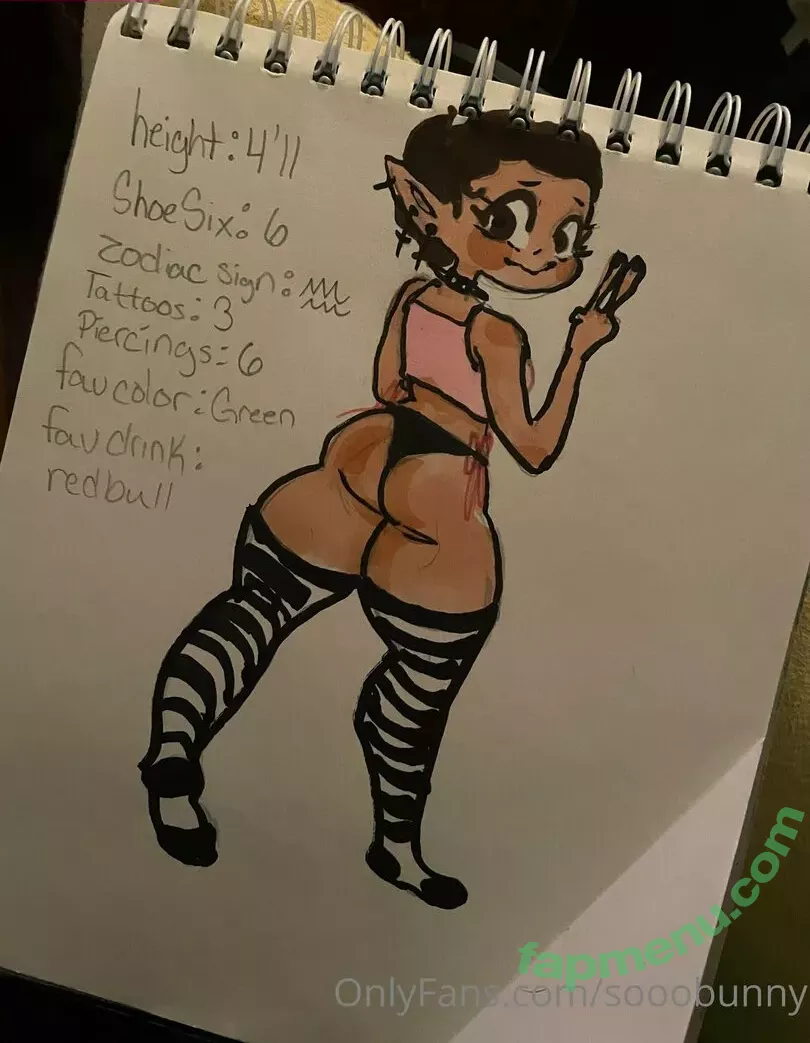 height: 4'11
Shoe Six: 6
Zodiac sign: ♒
Tattoos: 3
Piercings: 6
fav color: Green
fav drink:
redbull
fapmenu.com
OnlyFans.com/sooobunny